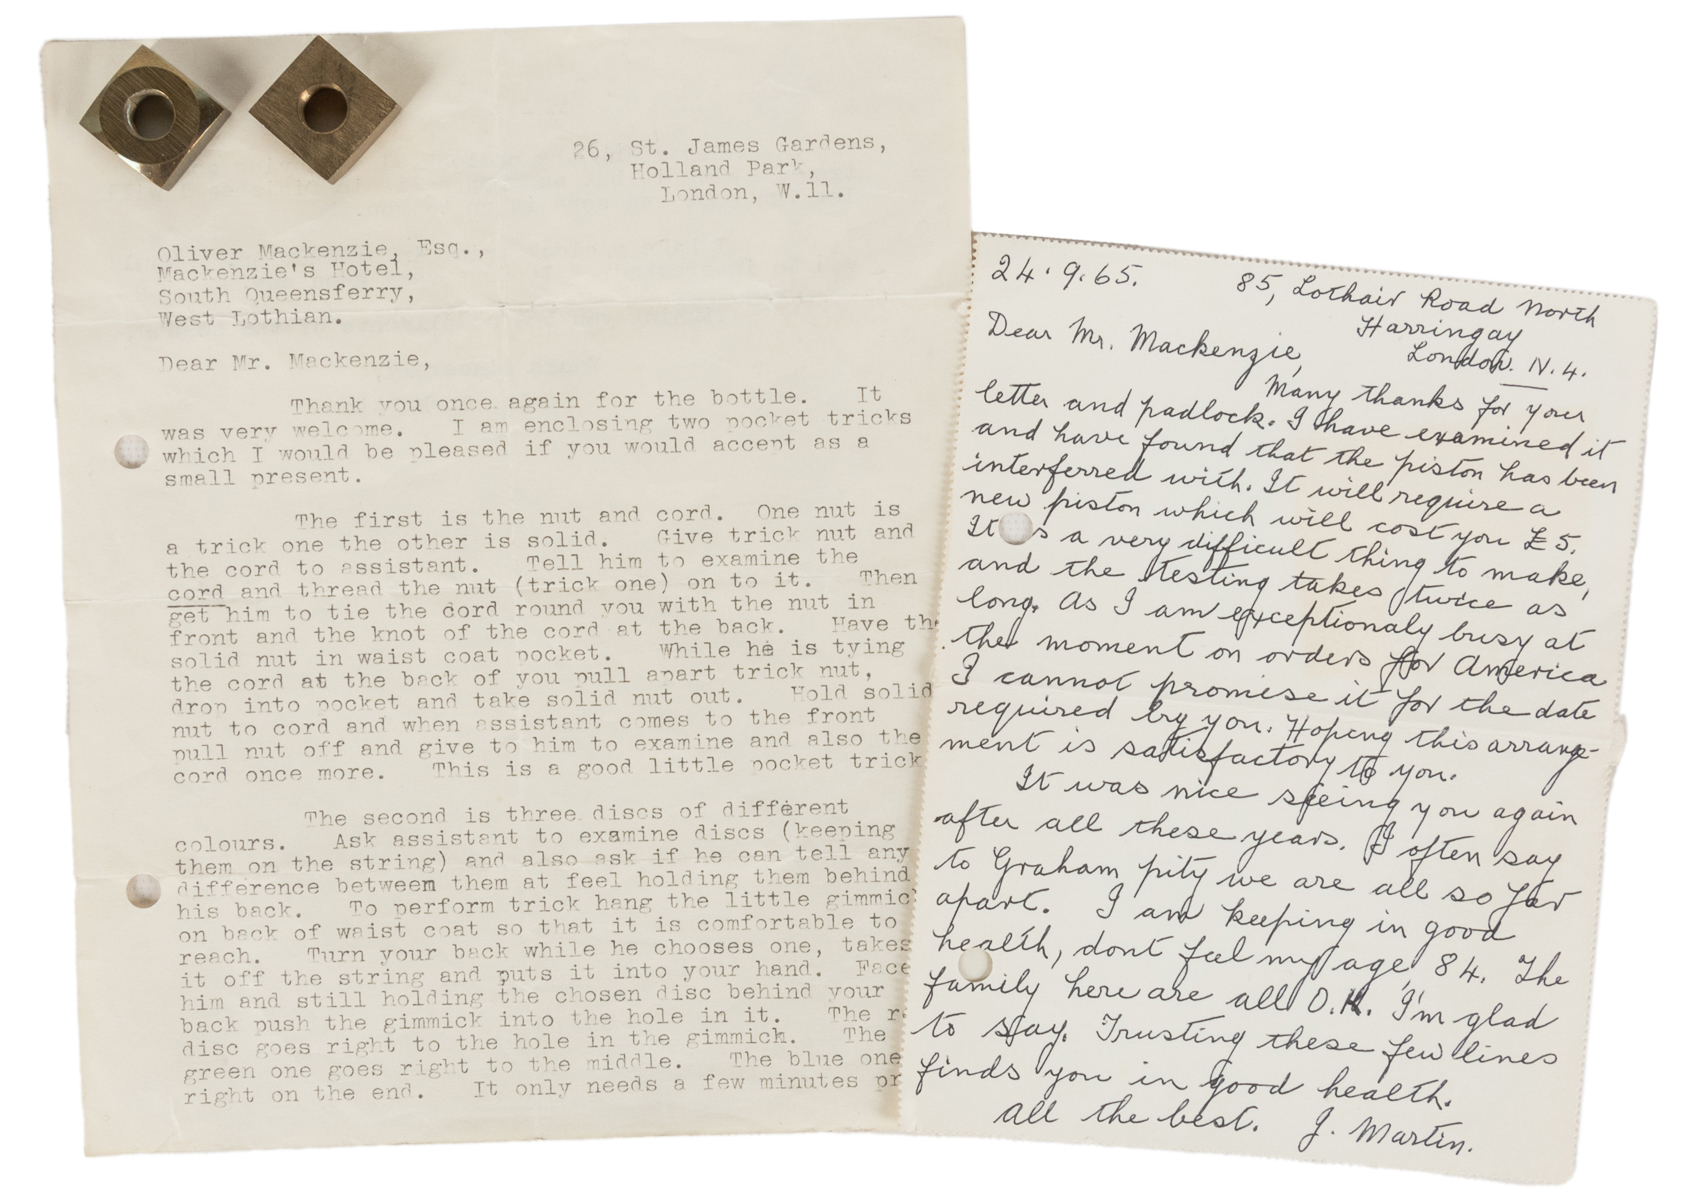 26, St. James Gardens,
Holland Park,
London, W.11.
Oliver Mackenzie, Esq.,
Mackenzie's Hotel,
South Queensferry,
West Lothian.
Dear Mr. Mackenzie,
Thank you once again for the bottle. It
was very welcome. I am enclosing two pocket tricks
which I would be pleased if you would accept as a
small present.
The first is the nut and cord. One nut is
a trick one the other is solid. Give trick nut and
the cord to assistant. Tell him to examine the
cord and thread the nut (trick one) on to it. Then
get him to tie the cord round you with the nut in
front and the knot of the cord at the back. Have the
solid nut in waist coat pocket. While he is tying
the cord at the back of you pull apart trick nut,
drop into pocket and take solid nut out. Hold solid
nut to cord and when assistant comes to the front
pull nut off and give to him to examine and also the
cord once more. This is a good little pocket trick
The second is three discs of different
colours. Ask assistant to examine discs (keeping
them on the string) and also ask if he can tell any
difference betweem them at feel holding them behind
his back. To perform trick hang the little gimmic
on back of waist coat so that it is comfortable to
reach. Turn your back while he chooses one, takes
it off the string and puts it into your hand. Face
him and still holding the chosen disc behind your
back push the gimmick into the hole in it. The r
disc goes right to the hole in the gimmick. The
green one goes right to the middle. The blue one
right on the end. It only needs a few minutes pr
24.9.65. 85, Lothair Road North
Harringay
London. N.4.
Dear Mr. Mackenzie,
Many thanks for your
letter and padlock. I have examined it
and have found that the piston has been
interferred with. It will require a
new piston which will cost you £5.
It s a very difficult thing to make,
and the testing takes twice as
long. As I am exceptionaly busy at
the moment on orders for America
I cannot promise it for the date
required by you. Hoping this arrange-
ment is satisfactory to you.
It was nice seeing you again
after all these years. I often say
to Graham pity we are all so far
apart. I am keeping in good
health, dont feel my age, 84. The
family here are all O.K. I'm glad
to say. Trusting these few lines
finds you in good health.
All the best. J. Martin.